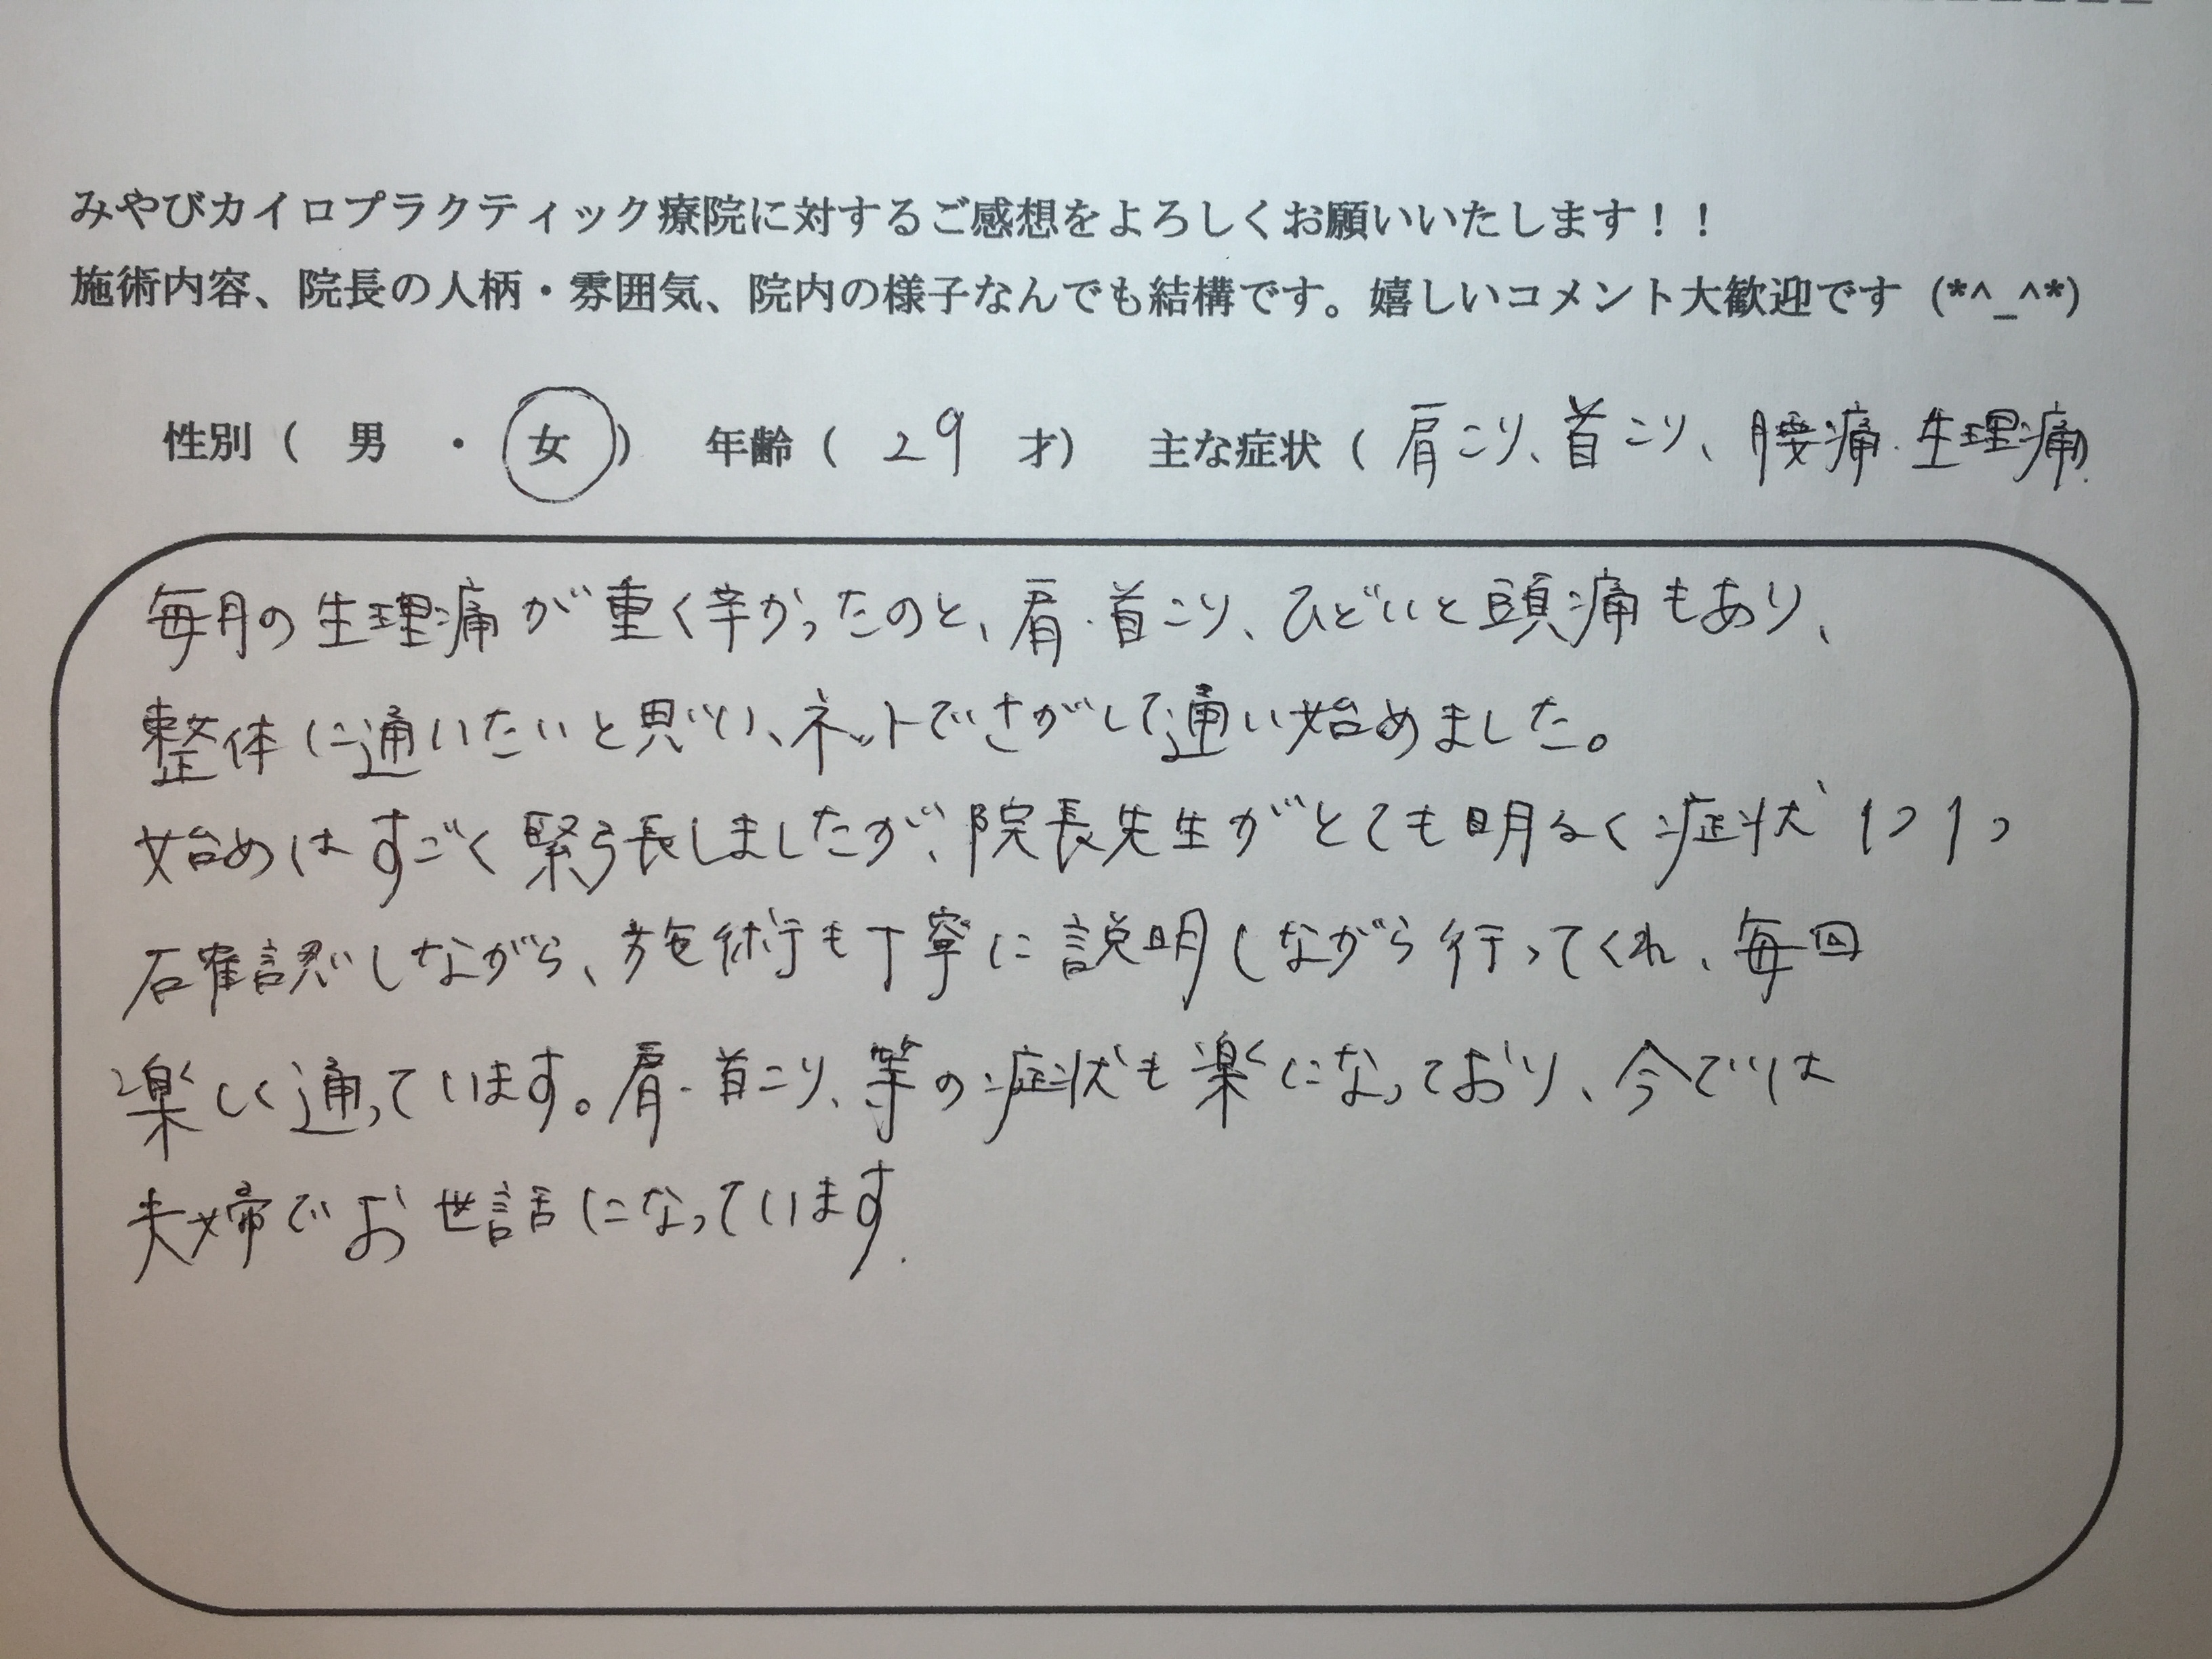 みやびカイロプラクティック療院に対するご感想をよろしくお願いいたします！！
施術内容、院長の人柄・雰囲気、院内の様子なんでも結構です。嬉しいコメント大歓迎です (*^_^*)
性別（ 男 ・ 女 ） 年齢（ 29 才） 主な症状（ 肩こり、首こり、腰痛、生理痛）
毎月の生理痛が重く辛かったのと、肩・首こり、ひどいと頭痛もあり、
整体に通いたいと思い、ネットでさがして通い始めました。
始めはすごく緊張しましたが、院長先生がとても明るく症状1つ1つ
確認しながら、施術も丁寧に説明しながら行ってくれ、毎回
楽しく通っています。肩・首こり、等の症状も楽になっており、今では
夫婦でお世話になっています.